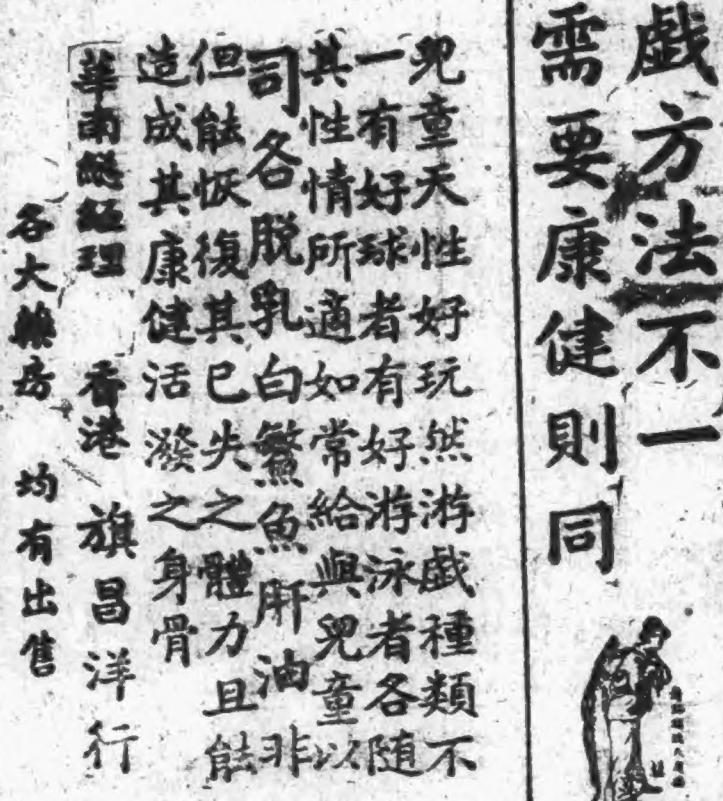 戯方法不一
需要康健則同
兒童天性好玩然游戯種類不
一有好球者有好游泳者各隨
其性情所適如常給與兒童以
司各脫乳白鱉魚肝油非
但能恢復其已失之體力且能
造成其康健活潑之身骨
華南總經理 香港 旗昌洋行
各大藥房 均有出售